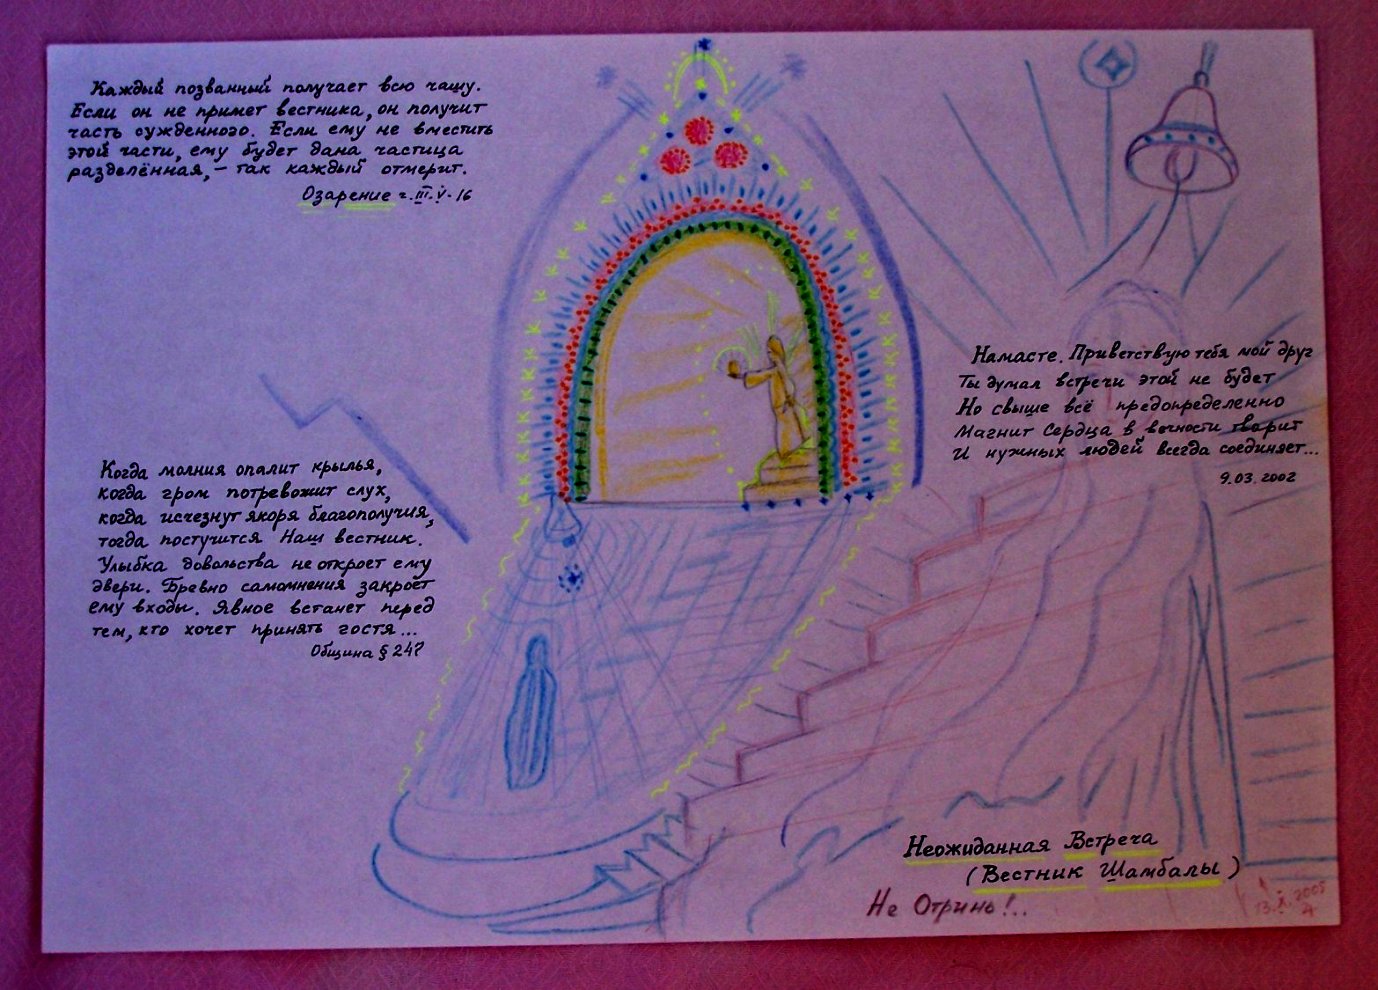 Каждый позванный получает всю чашу.
Если он не примет вестника, он получит
часть сужденного. Если ему не вместить
этой части, ему будет дана частица
разделённая, – так каждый отмерит.
Озарение ч. III. V. 16
Когда молния опалит крылья,
когда гром потревожит слух,
когда исчезнут якоря благополучия,
тогда постучится Наш вестник.
Улыбка довольства не откроет ему
двери. Бревно самомнения закроет
ему входы. Явное встанет перед
тем, кто хочет принять гостя...
Община § 247
Намасте. Приветствую тебя мой друг
Ты думал встречи этой не будет
Но свыше всё предопределенно
Магнит Сердца в вечности творит
И нужных людей всегда соединяет...
9.03.2002
Неожиданная Встреча
(Вестник Шамбалы)
Не Отринь!..
13.X.2005